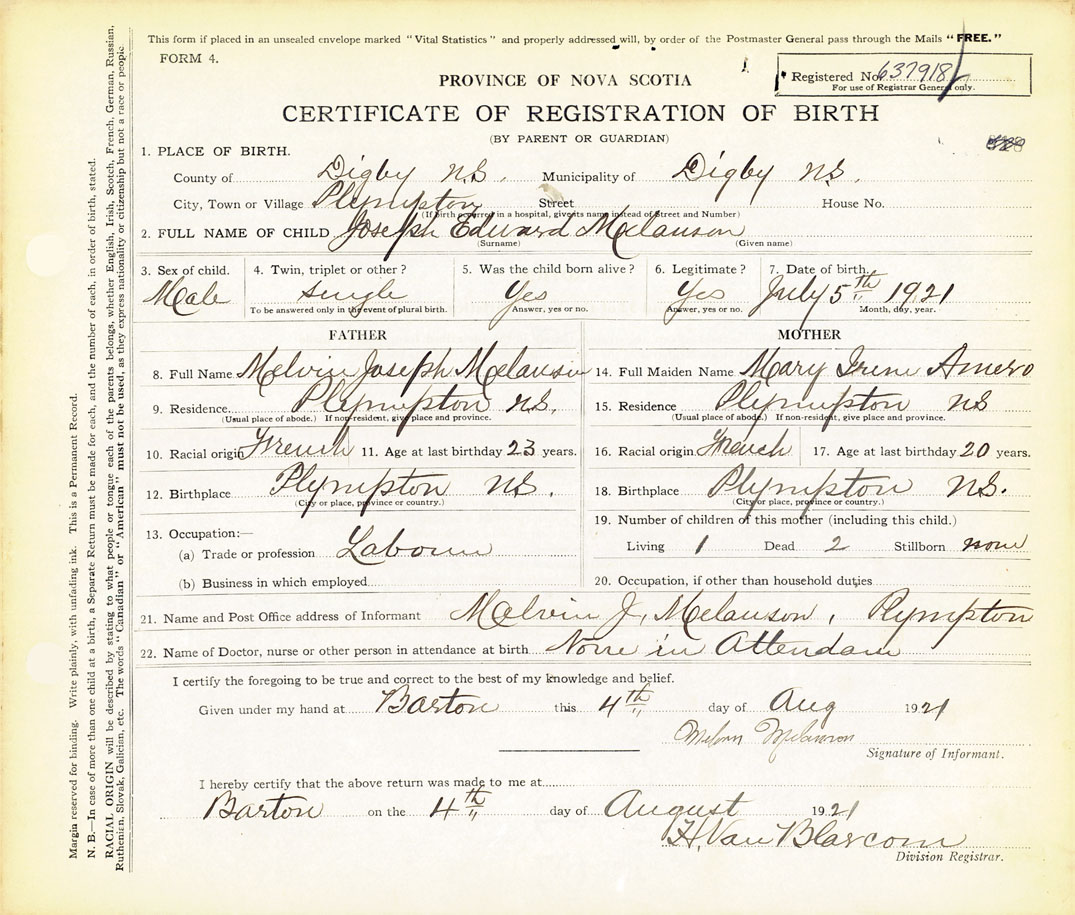 This form if placed in an unsealed envelope marked "Vital Statistics" and properly addressed will, by order of the Postmaster General pass through the Mails "FREE."
FORM 4.
Registered No. 637918
For use of Registrar General only.
PROVINCE OF NOVA SCOTIA
CERTIFICATE OF REGISTRATION OF BIRTH
(BY PARENT OR GUARDIAN)
1. PLACE OF BIRTH.
County of Digby N.S. Municipality of Digby N.S.
City, Town or Village Plympton Street House No.
(If birth occurred in a hospital, give its name instead of Street and Number)
2. FULL NAME OF CHILD Joseph Edward Melanson
(Surname) (Given name)
3. Sex of child. 4. Twin, triplet or other? 5. Was the child born alive? 6. Legitimate? 7. Date of birth.
Male single Yes Yes July 5th 1921
To be answered only in the event of plural birth. Answer, yes or no. Answer, yes or no. Month, day, year.
FATHER MOTHER
8. Full Name Melvin Joseph Melanson 14. Full Maiden Name Mary Irene Amero
9. Residence Plympton N.S. 15. Residence Plympton NS
(Usual place of abode.) If non-resident, give place and province. (Usual place of abode.) If non-resident, give place and province.
10. Racial origin French 11. Age at last birthday 23 years. 16. Racial origin French 17. Age at last birthday 20 years.
12. Birthplace Plympton N.S. 18. Birthplace Plympton N.S.
(City or place, province or country.) (City or place, province or country.)
13. Occupation:— 19. Number of children of this mother (including this child.)
(a) Trade or profession Labourer Living 1 Dead 2 Stillborn none
(b) Business in which employed 20. Occupation, if other than household duties
21. Name and Post Office address of Informant Melvin J. Melanson, Plympton
22. Name of Doctor, nurse or other person in attendance at birth None in Attendance
I certify the foregoing to be true and correct to the best of my knowledge and belief.
Given under my hand at Barton this 4th day of Aug 1921
Melvin Melanson
Signature of Informant.
I hereby certify that the above return was made to me at
Barton on the 4th day of August 1921
H. Van Blarcom
Division Registrar.
Margin reserved for binding. Write plainly, with unfading ink. This is a Permanent Record.
N. B.—In case of more than one child at a birth, a Separate Return must be made for each, and the number of each, in order of birth, stated.
RACIAL ORIGIN will be described by stating to what people or tongue each of the parents belongs, whether English, Irish, Scotch, French, German, Russian,
Ruthenian, Slovak, Galician, etc. The words "Canadian" or "American" must not be used, as they express nationality or citizenship but not a race or people